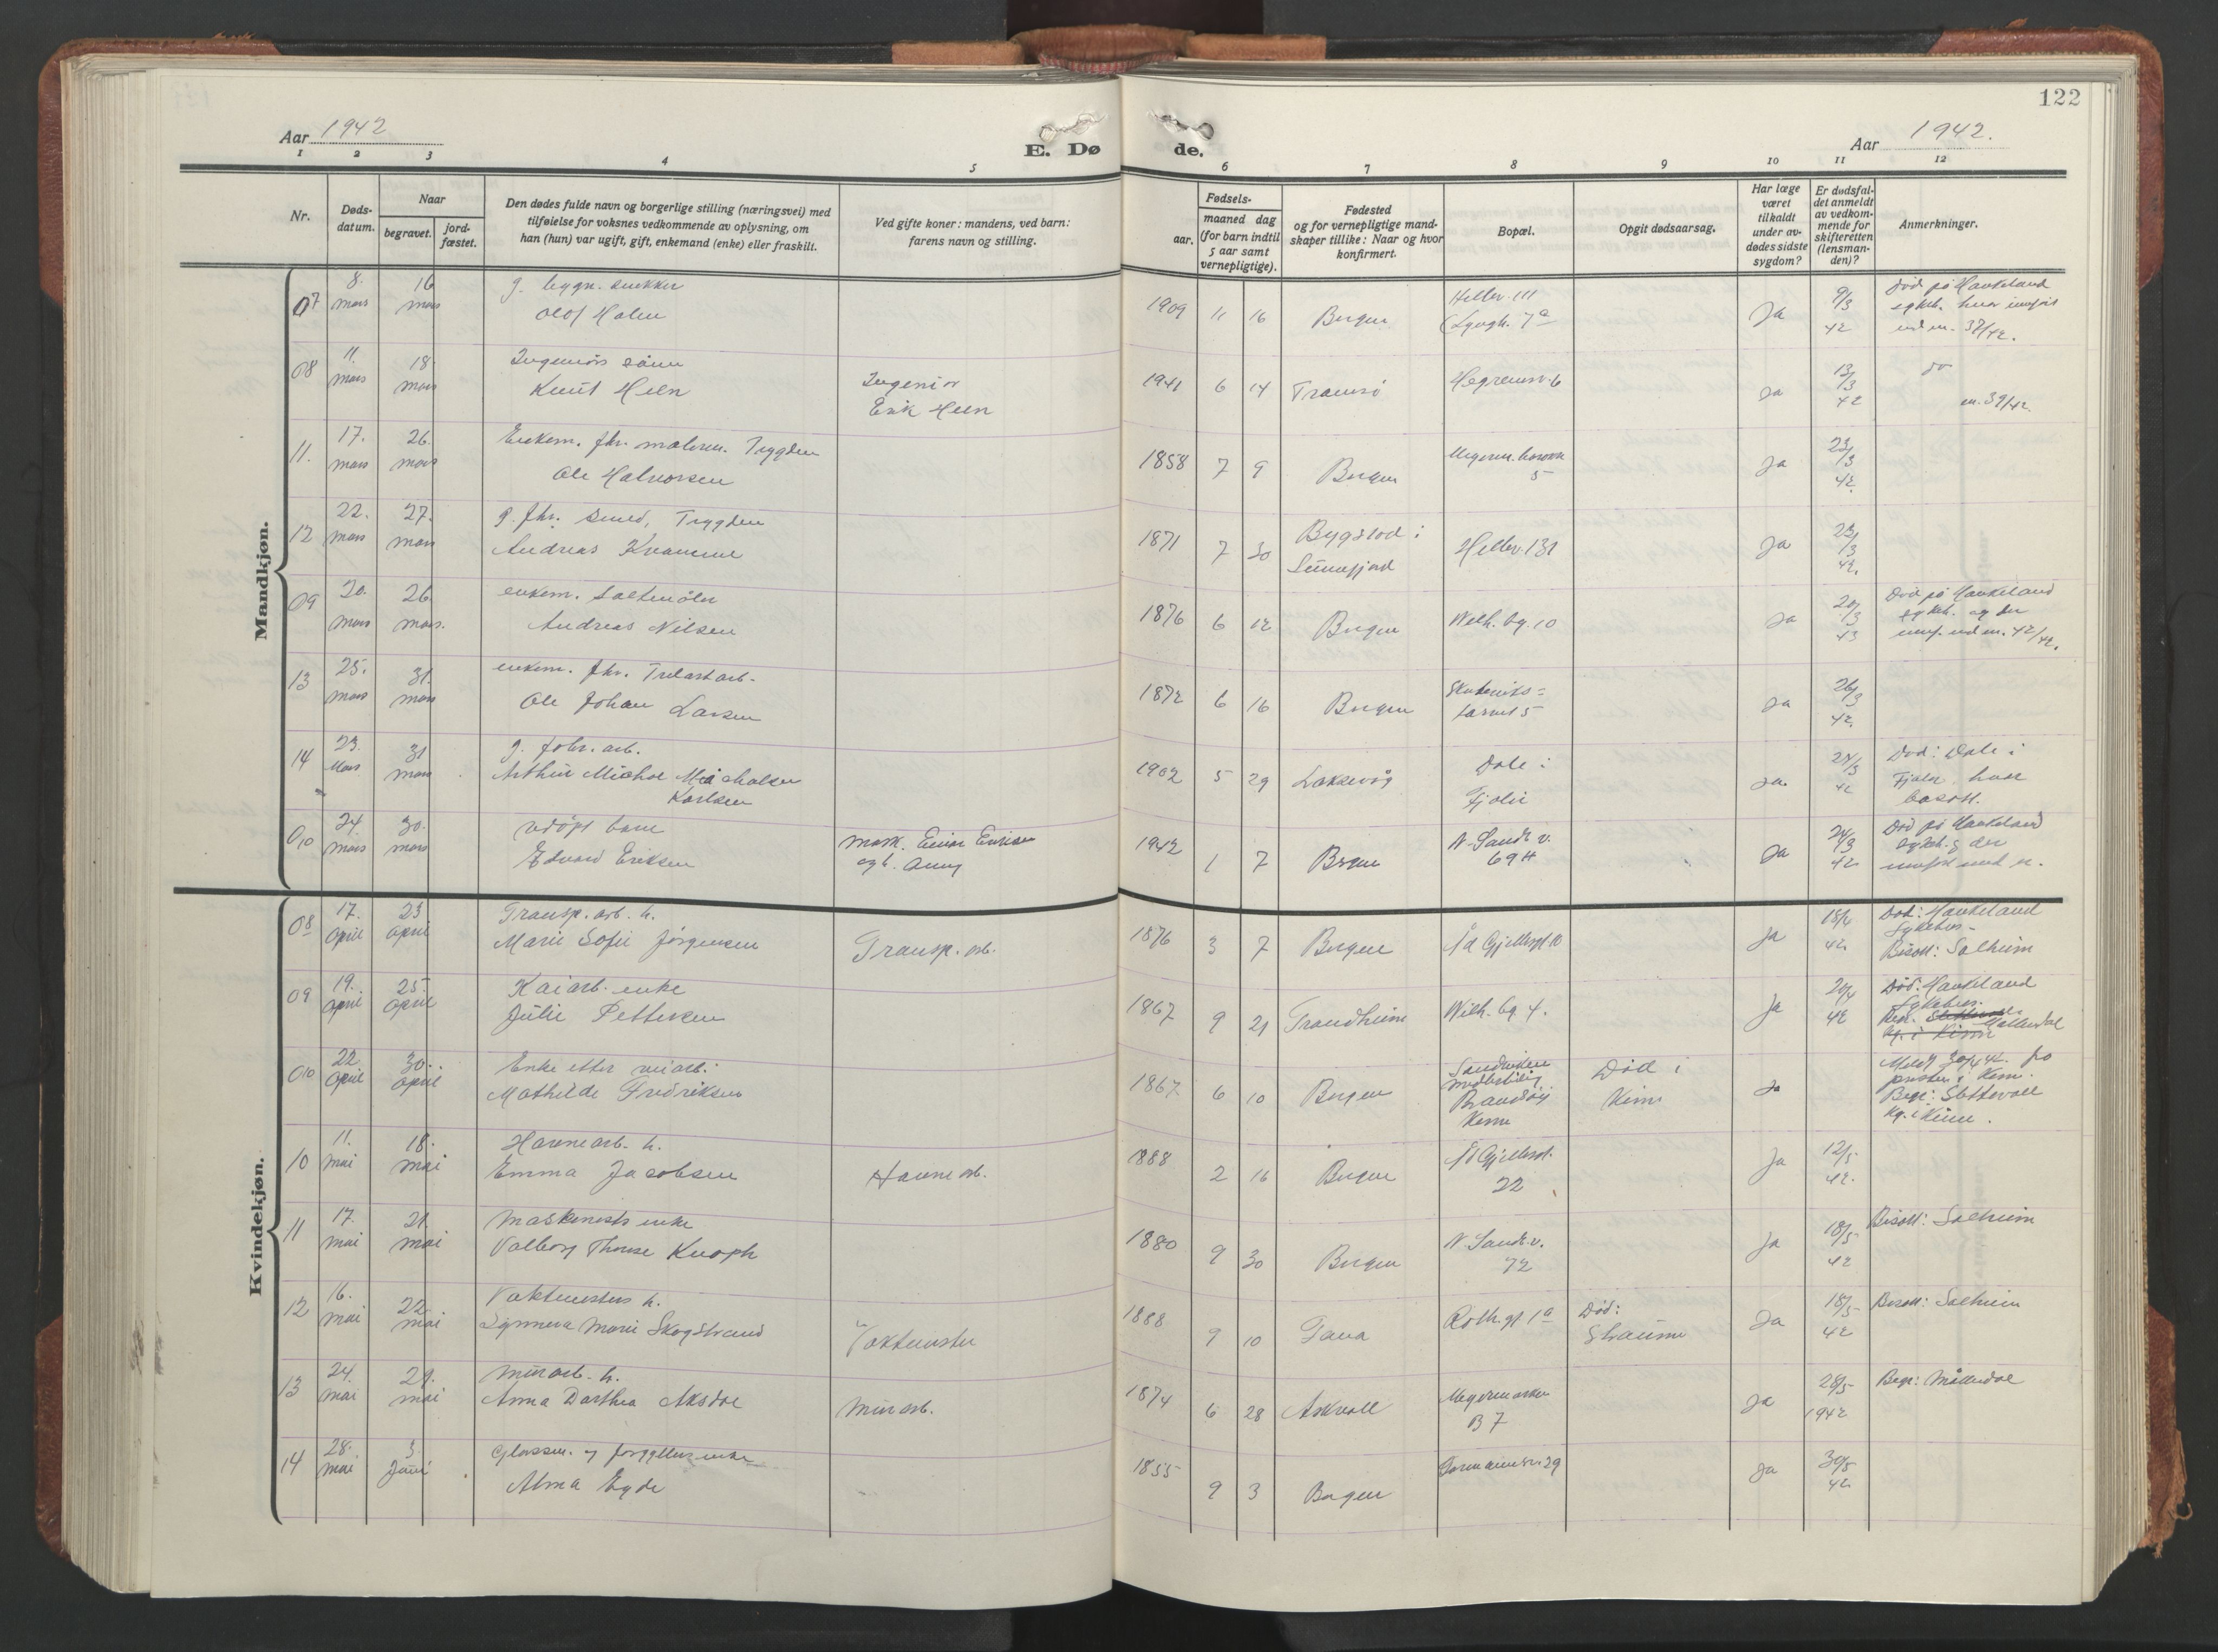 122
Aar 1942
E. Dø
de.
Aar 1942.
1 2 3 4 5
6 7 8 9 10 11 12
Nr.
Døds-
datum.
Naar
begravet.
jord-
fæstet.
Den dødes fulde navn og borgerlige stilling (næringsvei) med
tilføielse for voksnes vedkommende av oplysning, om
han (hun) var ugift, gift, enkemand (enke) eller fraskilt.
Ved gifte koner: mandens, ved barn:
farens navn og stilling.
Fødsels-
aar.
maaned dag
(for barn indtil
5 aar samt
vernepligtige).
Fødested
og for vernepligtige mand-
skaper tillike: Naar og hvor
konfirmert.
Bopæl.
Opgit dødsaarsag.
Har læge
været
tilkaldt
under av-
dødes sidste
sygdom?
Er dødsfal-
det anmeldt
av vedkom-
mende for
skifteretten
(lensman-
den)?
Anmerkninger.
Mandkjøn.
07 8. mars 16 mars
g. bygn. snekker
Olof Holm
1909 11 16 Bergen
Ja 9/3 42
Død på Haukeland
sykeh. hvor innført
und nr. 37/42.
08 11. mars 18. mars
Ingeniørs sønn
Knut Heen
Ingeniør
Erik Heen
1941 6 14 Tromsø Hegrenesv. 6
Ja 13/3 42
do
nr. 39/42.
11. 17. mars 26. mars
Enkem. fhv. malerm. Trygden
Ole Halvorsen
1858 7 9 Bergen
5
Ja 23/3 42.
12 22. mars 27. mars
g. fhv. smed, Trygden
Andreas Kvamme
1871 7 30
Bygstad i
Sunnfjord
Hellev. 131
Ja 23/3 42.
09 20. mars 26. mars.
enkem.
Andreas Nilsen
1876 6 12 Bergen Wilh. bg. 10
Ja 20/3 43
Død på Haukeland
sykeh. og der
innf. und nr. 42/42.
13 25. mars 31. mars
enkem. fhv. Trelastarb.
Ole Johan Larsen
1872 6 16 Bergen
Skuteviks=
torvet 5
Ja 26/3 42.
14 23. Mars 31 mars
g. fabr. arb.
Arthur Michal Michalsen
Karlsen
1902 5 29 Laksevåg
Dale i
Fjaler
Ja. 24/3 42
Død: Dale i
Fjaler, hvor
bosatt.
010 24. mars 30. mars
udøpt barn
Edvard Eriksen
Mask. Einar Eriksen
og h. Anny
1942 1 7 Bergen
N. Sandv. v.
69 H
Ja 24/3 42
Død på Haukeland
sykeh. og der
innført und nr.
Kvindekjøn.
08 17. april 23 april
Transp. arb. h.
Marie Sofie Jørgensen
Transp. arb.
1876 3 7 Bergen
Ja 18/4 42
Død: Haukeland
Sykehus -
Bisatt: Solheim
09 19. april 25. april
Kaiarb. enke
Julie Pettersen
1867 9 21 Trondheim Wilh. bg 4.
Ja 20/4 42
Død: Haukeland
Sykehus.
Begr. Møllendal
i Kinn
010 22 april 30. april
Enke etter
Mathilde Fredriksen
1867 6 10 Bergen
Sandviken
Brandsøy
Kinn
Død i
Kinn
Ja
Meldt 30/4 42. fra
presten i Kinn.
Begr: Slettevoll
kg. i Kinn.
10 11. mai 18. mai
Havnearb. h.
Emma Jacobsen
Havnearb.
1888 2 16 Bergen
22
Ja 12/5 42.
11 17. mai 21. mai
Maskinists enke
Valborg Thorine Knoph
1880 9 30 Bergen
N. Sandv. v.
72
Ja 18/5 42
Bisatt: Solheim
12 16. mai 22. mai
Vaktmesters h.
Synneva Marie Skogstrand
Vaktmester
1888 9 10 Tana Roth. gt 1a
Død:
Straume
Ja 18/5 42
Bisatt: Solheim
13 24. mai 29. mai
Murarb. h.
Anna Darthea Aksdal
Murarb.
1874 6 28 Askvoll
B 7
Ja 28/5 1942
Begr: Møllendal
14 28. mai 3. juni
Glassm. og forgyllers enke
Alma Eyde
1855 9 3 Bergen
Ja 30/5 42